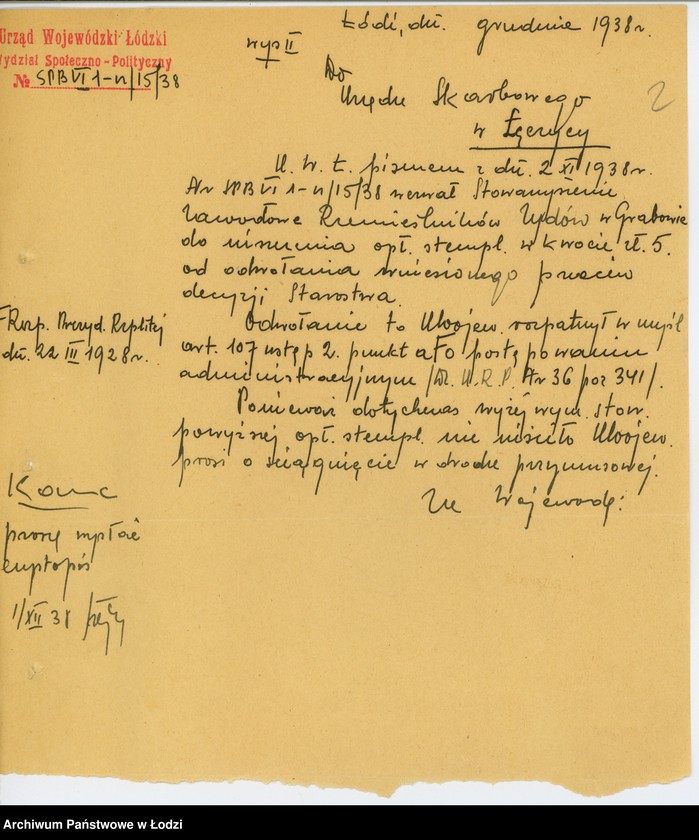 Łódź, dn. grudnia 1938 r.
Urząd Wojewódzki Łódzki
Wydział Społeczno-Polityczny
№ SPB VI 1-n/15/38
wyp II
Do
Urzędu Skarbowego
w Łęczycy
2
U. W. Ł. pismem z dn. 2 XI 1938 r.
Nr SPB VI 1-n/15/38 wezwał Stowarzyszenie
Zawodowe Rzemieślników Żydów w Grabowie
do uiszczenia opł. stempl. w kwocie zł. 5.
od odwołania wniesionego przeciw
decyzji Starostwa.
Odwołanie to U Wojew. rozpatrzył w myśl
Rozp. Prezyd. Rzplitej
dn. 22 III 1928 r.
art. 107 ustęp 2. punkt a o postępowaniu
administracyjnym /Dz. U. R. P. Nr 36 poz 341/.
Ponieważ dotychczas wyżej wym. stow.
powyższej opł. stempl. nie uiściło U Wojew.
prosi o ściągnięcie w drodze przymusowej.
Za Wojewodę:
Kanc
proszę wpłać
1/XII 38
Archiwum Państwowe w Łodzi